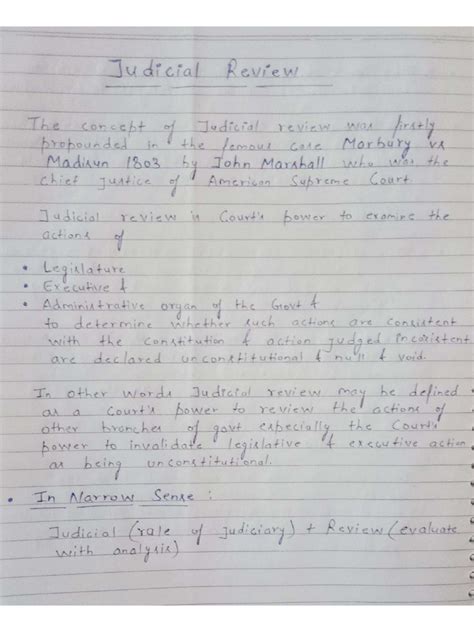 Judicial Review
The concept of Judicial review was firstly
propounded in the femous case Morbury vs
Madisun 1803 by John Marshall who was the
Chief Justice of American Supreme Court.
Judicial review is Court's power to examine the
actions of
• Legislature
• Executive &
• Administrative organ of the Govt &
to determine whether such actions are consistent
with the constitution & action judged inconsistent
are declared unconstitutional & null & void.
In other words Judicial review may be defined
as a Court's power to review the actions of
other branches of govt especially the Court's
power to invalidate legislative & executive action
as being unconstitutional.
• In Narrow Sense :
Judicial (role of judiciary) + Review (evaluate
with analysis)